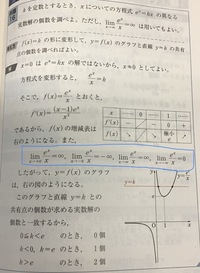 kを定数とするとき、xについての方程式 e^x=kx の異なる
実数解の個数を調べよ。ただし、lim e^x/x=∞ は用いてもよい。
x→∞
f(x)=k の形に変形して、y=f(x)のグラフと直線 y=k の共有
点の個数を調べればよい。
x=0 は e^x=kx の解ではないから、x≠0としてよい。
方程式を変形すると、e^x/x=k
そこで、f(x)=e^x/x とおくと、
f'(x)=(x-1)e^x/x^2
x … 0 … 1 …
f'(x)
f(x) 極小 e
であるから、f(x)の増減表は
右のようになる。また、
lim e^x/x=∞, lim e^x/x=-∞, lim e^x/x=∞, lim e^x/x=0
したがって、y=f(x)のグラフ
は、右の図のようになる。
このグラフと直線 y=k との
共有点の個数が求める実数解の
個数と一致するから、
0≦k<e のとき、0個
k<0, k=e のとき、1個
k>e のとき、2個
y=k
e